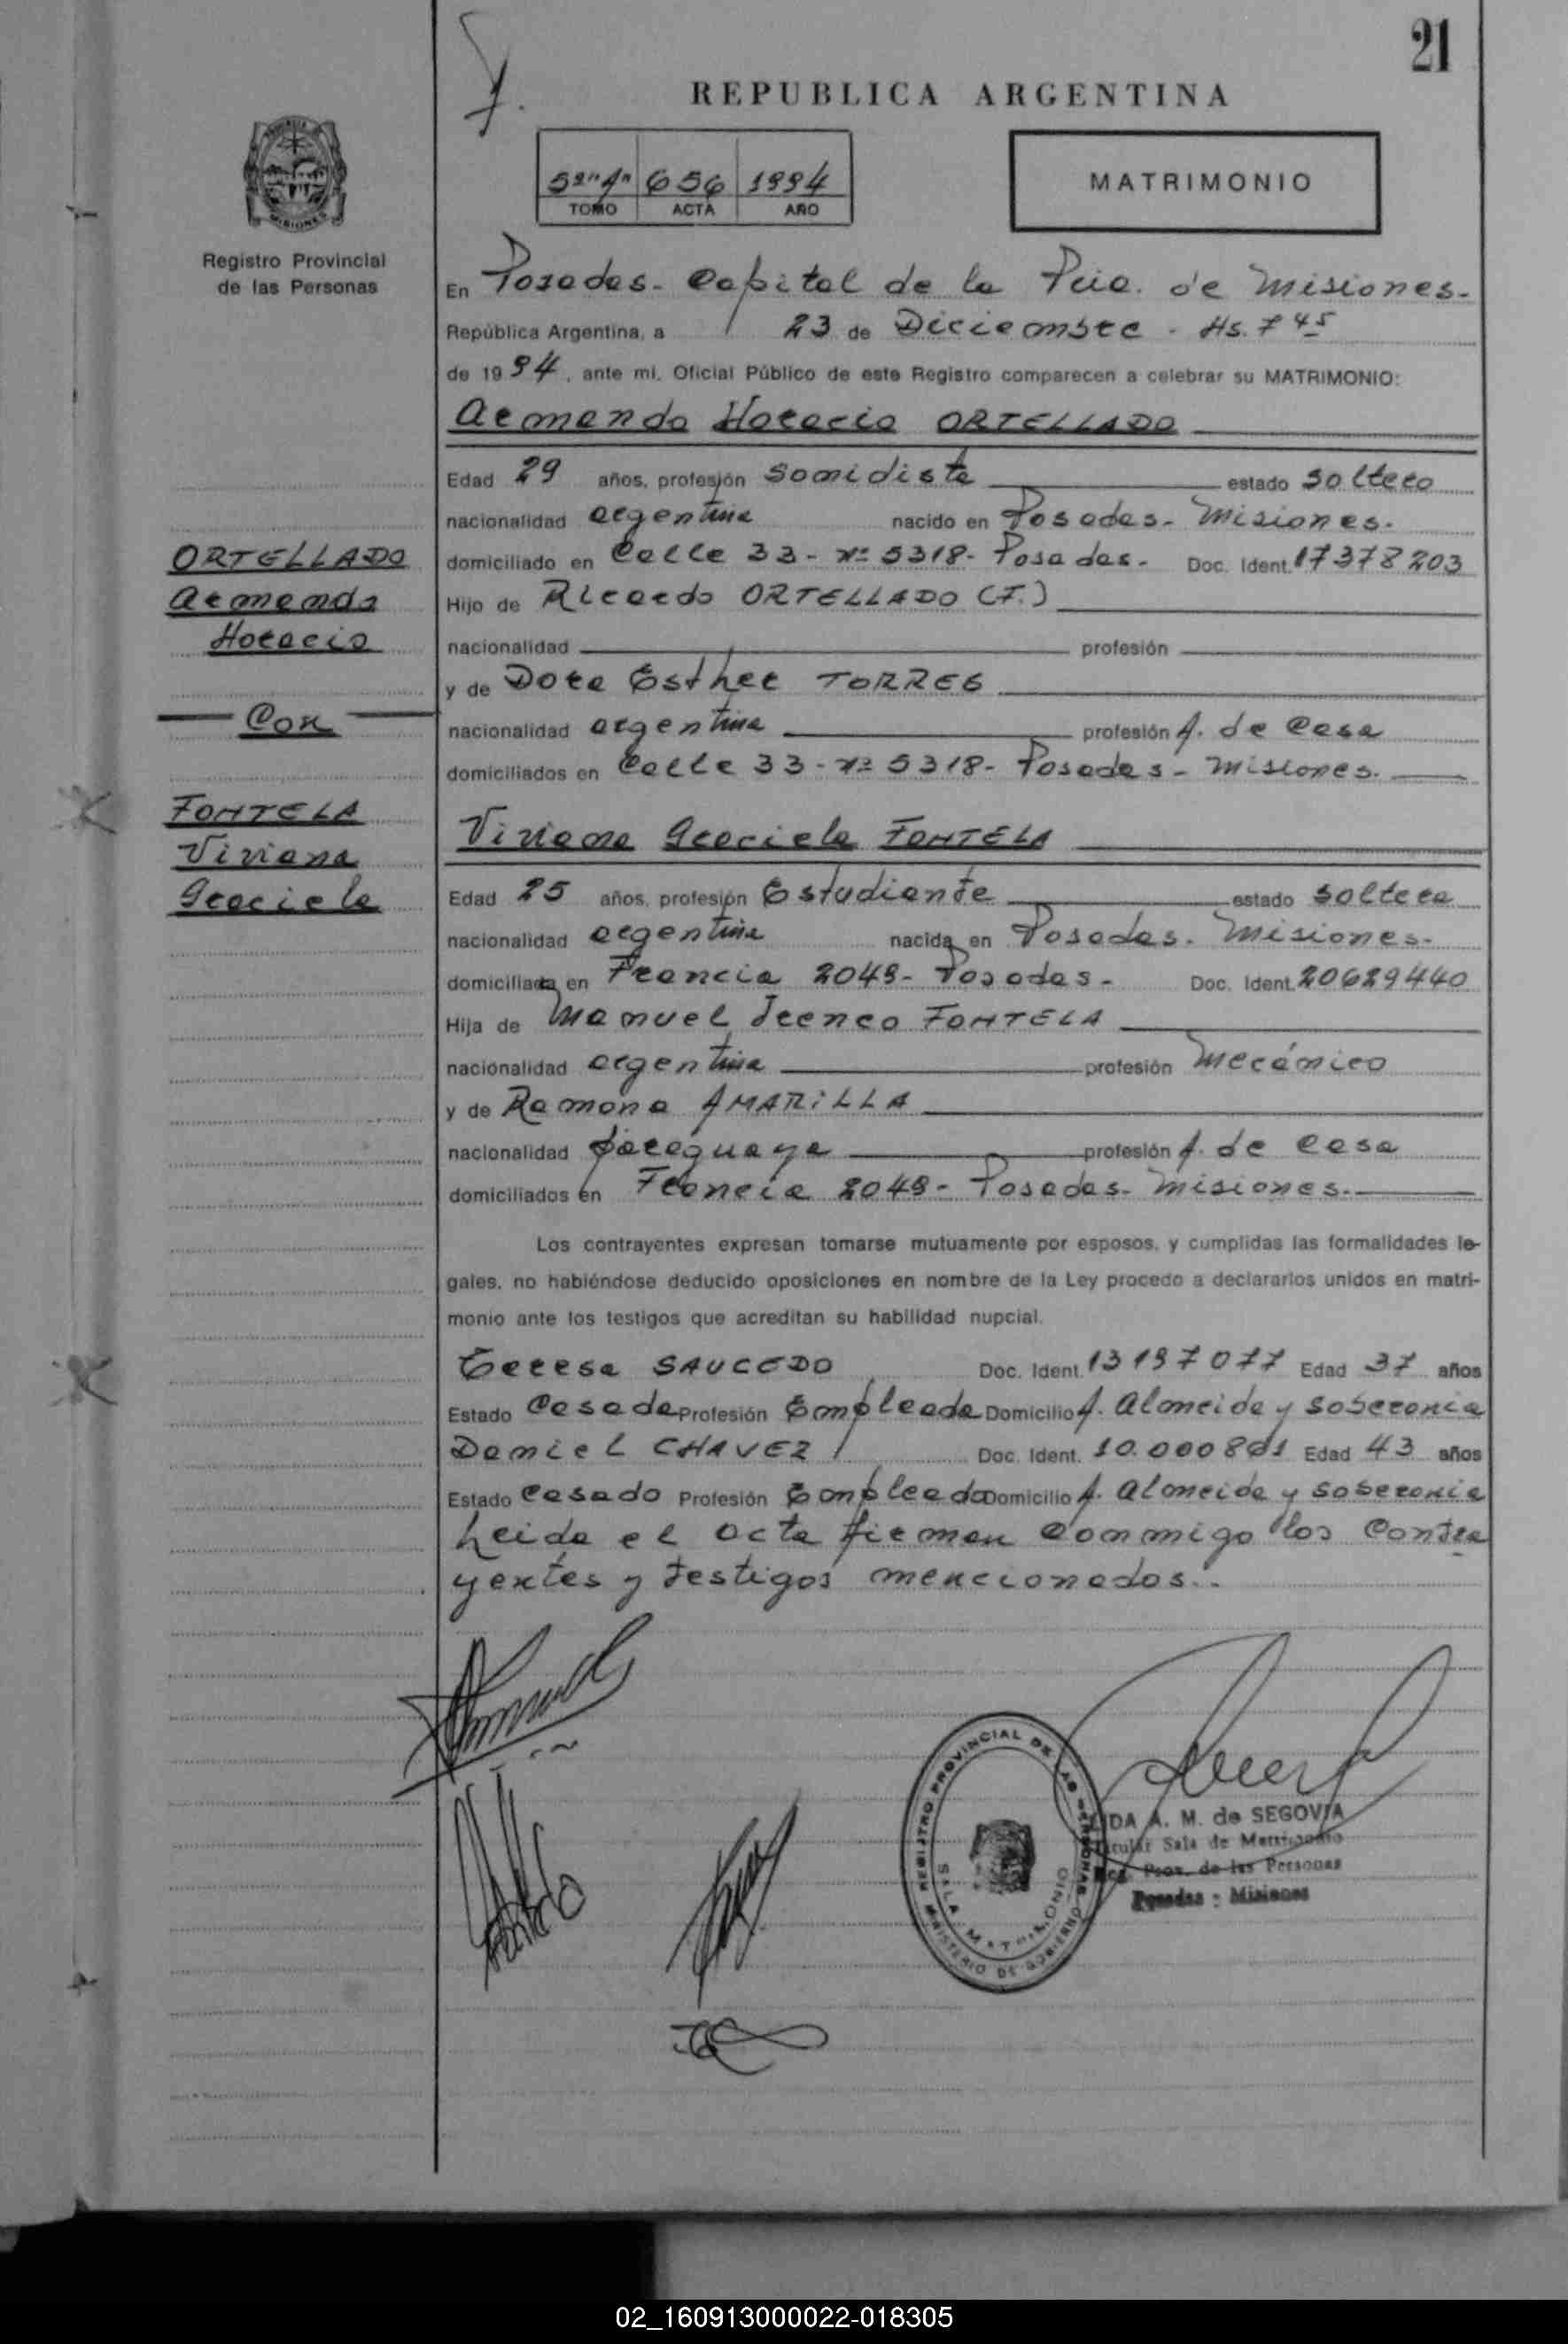 21
REPUBLICA ARGENTINA
5º "A" 656 1994
TOMO ACTA AÑO
MATRIMONIO
Registro Provincial
de las Personas
En Posadas - Capital de la Pcia. de Misiones-
República Argentina, a 23 de Diciembre - Hs. 7 45
de 1994, ante mi, Oficial Público de este Registro comparecen a celebrar su MATRIMONIO:
Armando Horacio ORTELLADO
Edad 29 años, profesión Sonidista estado Soltero
nacionalidad argentina nacido en Posadas - Misiones.
domiciliado en Calle 33 - Nº 5318 - Posadas. Doc. Ident. 17378203
Hijo de Ricardo ORTELLADO (F.)
nacionalidad profesión
y de Dora Esther TORRES
nacionalidad argentina profesión A. de Casa
domiciliados en Calle 33 - Nº 5318 - Posadas - Misiones.
ORTELLADO
Armando
Horacio
Con
FONTELA
Viviana
Graciela
Viviana Graciela FONTELA
Edad 25 años, profesión Estudiante estado Soltera
nacionalidad argentina nacida en Posadas. Misiones.
domiciliada en Francia 2049 - Posadas - Doc. Ident. 20629440
Hija de Manuel FONTELA
nacionalidad argentina profesión Mecánico
y de Ramona AMARILLA
nacionalidad paraguaya profesión A. de Casa
domiciliados en Francia 2049 - Posadas - Misiones.
Los contrayentes expresan tomarse mutuamente por esposos, y cumplidas las formalidades le-
gales, no habiéndose deducido oposiciones en nombre de la Ley procedo a declararlos unidos en matri-
monio ante los testigos que acreditan su habilidad nupcial.
Teresa SAUCEDO Doc. Ident. 13197077 Edad 37 años
Estado Casada Profesión Empleada Domicilio A. Almeida y Soberania
Daniel CHAVEZ Doc. Ident. 10.000801 Edad 43 años
Estado Casado Profesión Empleado Domicilio A. Almeida y Soberania
Leida el acta firman conmigo los Contra
yentes y testigos mencionados..
REGISTRO PROVINCIAL DE LAS PERSONAS
SALA MATRIMONIO
MINISTERIO DE GOBIERNO
A. M. de SEGOVIA
Titular Sala de Matrimonio
Reg. Prov. de las Personas
Posadas - Misiones
02_160913000022-018305